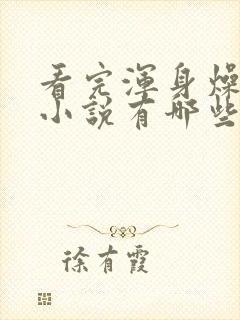 看完浑身燥
小说有哪些
徐有霞